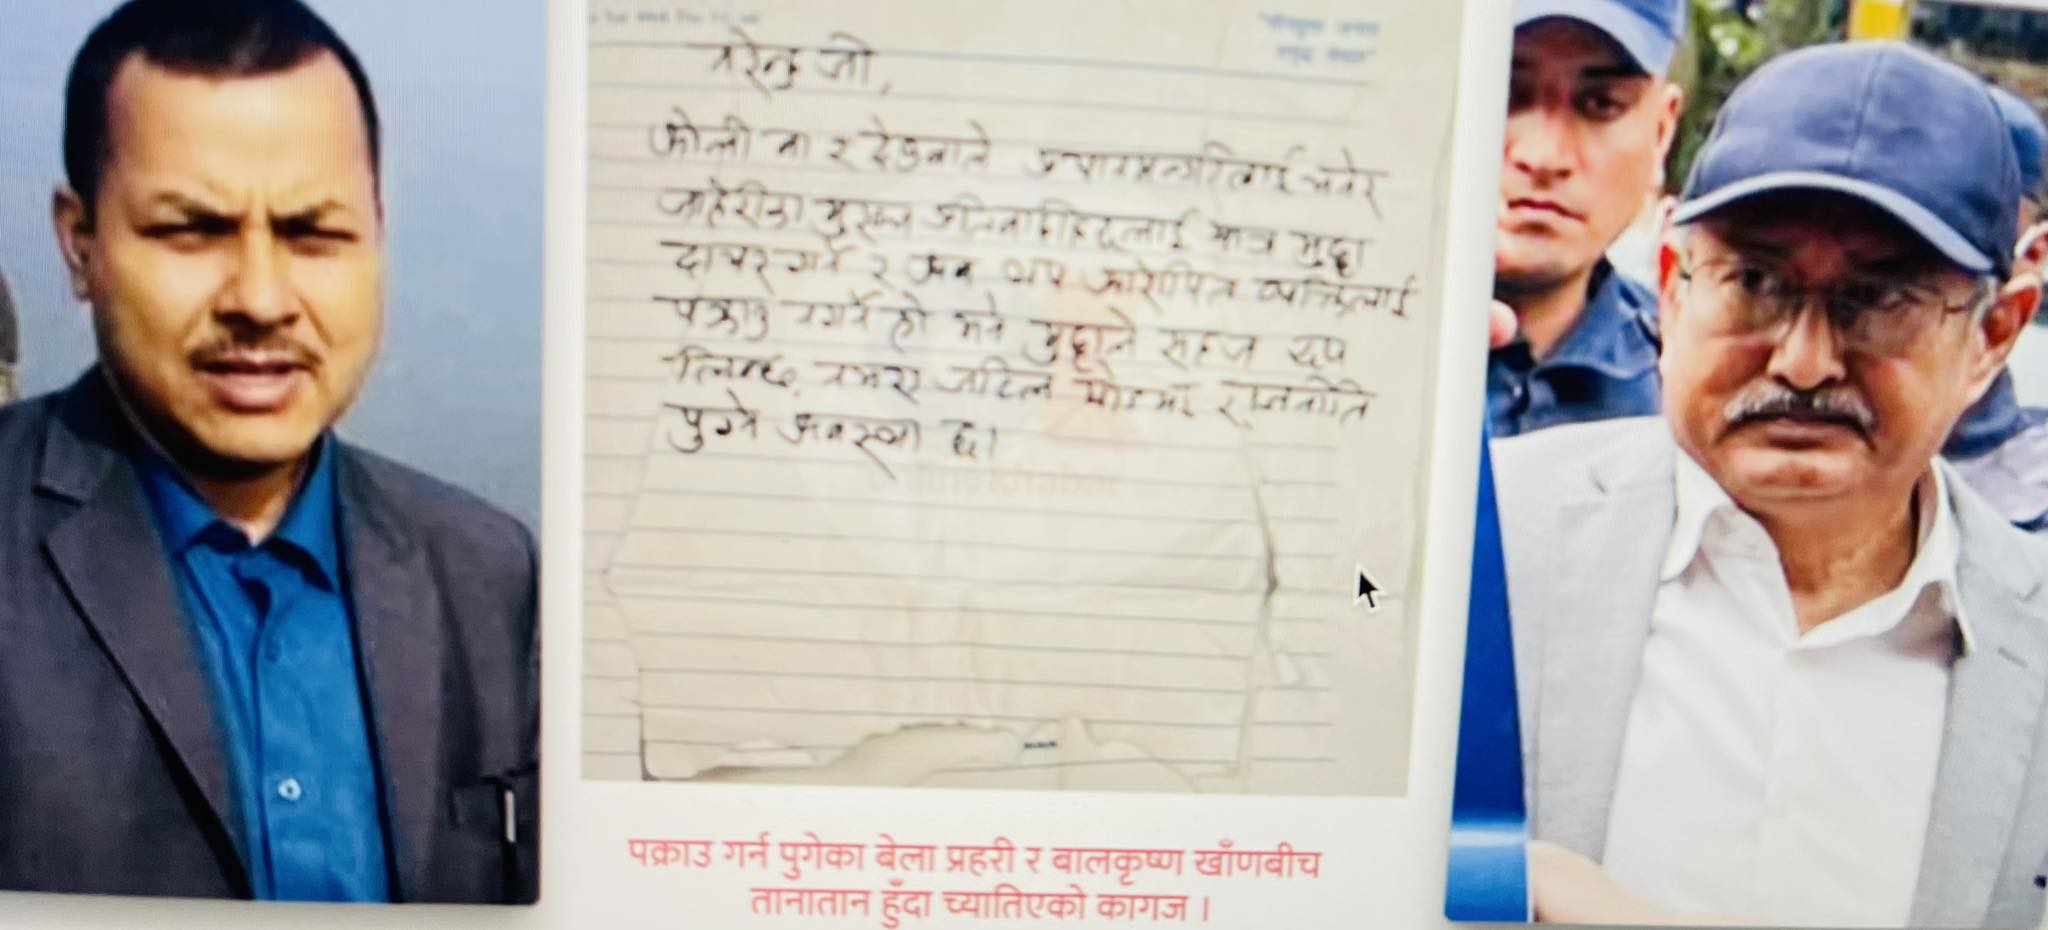 नरेन्द्र जी,
ओली वा र देउवाले प्रधानमन्त्रीलाई भनेर
जाहेरीका मुख्य प्रतिवादीलाई मात्र मुद्दा
दायर गर्ने र अब थप आरोपित व्यक्तिलाई
पक्राउ नगर्ने हो भने मुद्दाले सहज रुप
लिन्छ, नभए जटिल मोडमा राजनीति
पुग्ने अवस्था छ।
पक्राउ गर्न पुगेका बेला प्रहरी र बालकृष्ण खाँणबीच
तानातान हुँदा च्यातिएको कागज ।